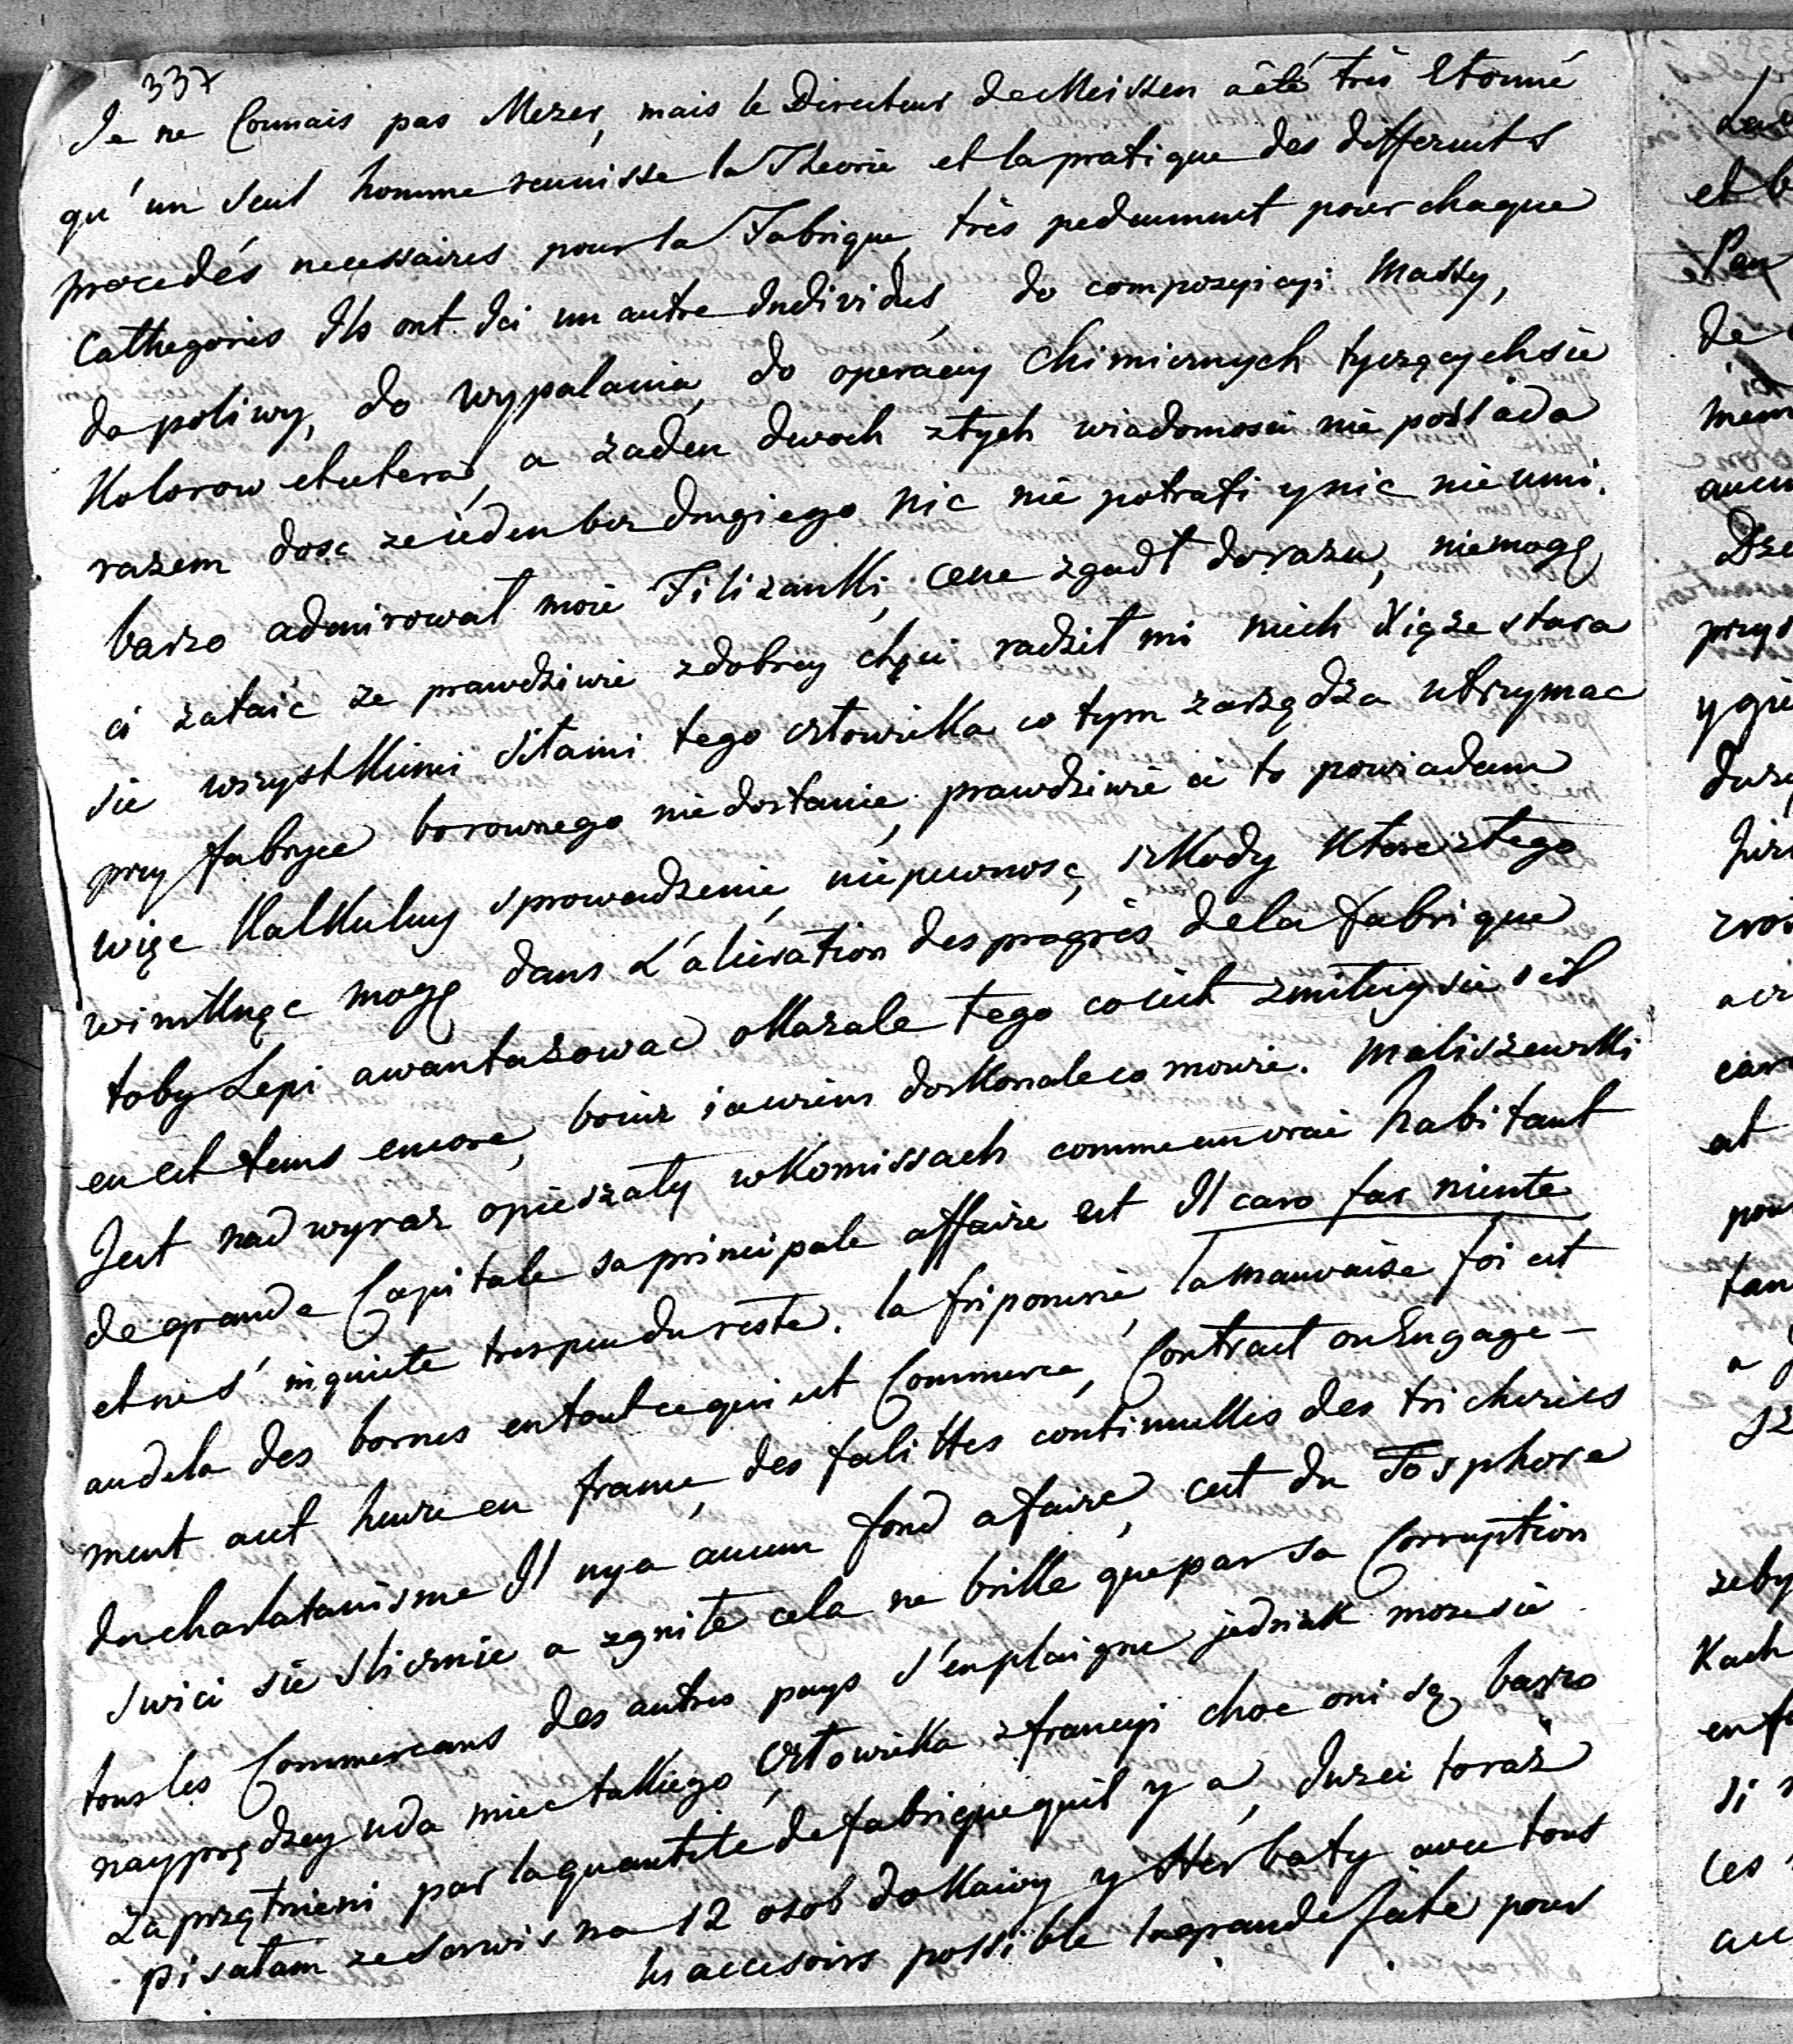 337
Je ne Connais pas Mezer, mais le Directeur de Meissen a êté très Etonné
qu'un seul homme reunisse la Theorie et la pratique des differents
procedés necessaires pour la Fabrique, très pedemment pour chaque
Cathegories Ils ont Ici un autre Individus, do compozycyi Massy,
do poliwy, do wypalania, do operacyi Chimicznych tyczących sie
Kolorow etcetera, a zaden dwoch z tych wiadomosci nie possiada
razem dosc ze ieden bez drugiego nic nie potrafi y nic nie umi.
barzo admirował moie Filizanki, cene zgadł dorazu, niemogę
ci zataić ze prawdziwie z dobrey chęci radził mi niech Xiąze stara
sie wszystkiemi siłami tego człowieka co tym zarządza utrzymac
przy fabryce borownego niedostanie, prawdziwie ci to powiadam
więc Kalkuluy sprowadzenie, niepewnosc, szkody Ktore z tego
wyniknąc mogę dans L'alieration des progrès de la fabrique
toby Lepi awantazowac okazale tego co iest zmiłuysie s'il
en est tems encore, boiuz ia wiem doskonale co mowie. Maliszewski
Jest nad wyraz opieszały w Komissach comme un vrai habitant
de grande Capitale sa principale affaire est Il caro far niente
et ne s'inquiete tres peu du reste. la friponnerie, la mauvaise foi est
au dela des bornes en tout ce qui est Commerce, Contract on Engage-
ment a cet heure en france, des falittes continuelles des tricheries
du charlatanisme Il ny a aucun fond a faire, cest du Fosphore
swici sie slicznie a zgniłe cela ne brille que par sa Corruption
tous les Commercans des autres pays s'en plaigne jednak moze sie
nayprędzey uda miec takiego Człowieka z francyi choc oni są barzo
zaprzątnieni par la quantité de fabrique quil y a, Inszei toraz
pisałam ze serwis na 12 osob do Kawy y Herbaty avec tous
les accesoirs possible la grande Jate pour